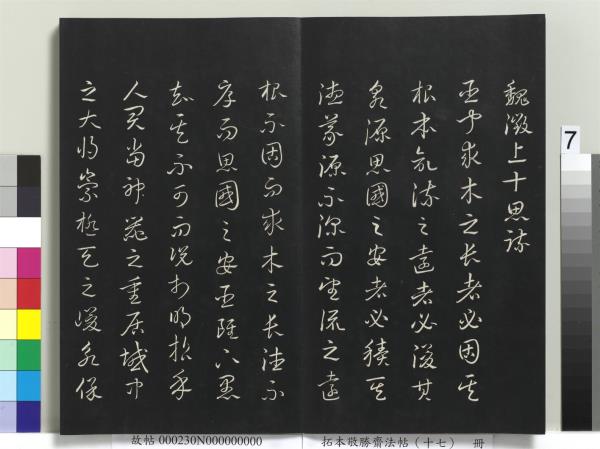 魏澂上十思疏
臣聞求木之長者必固其
根本欲流之遠者必浚其
泉源思國之安者必積其
德義源不深而望流之遠
根不固而求木之長德不
厚而思國之安臣雖下愚
知其不可而況於明哲乎
人君當神器之重居域中
之大將崇極天之峻永保
7
故帖 000230N000000000
拓本敬勝齋法帖（十七） 冊